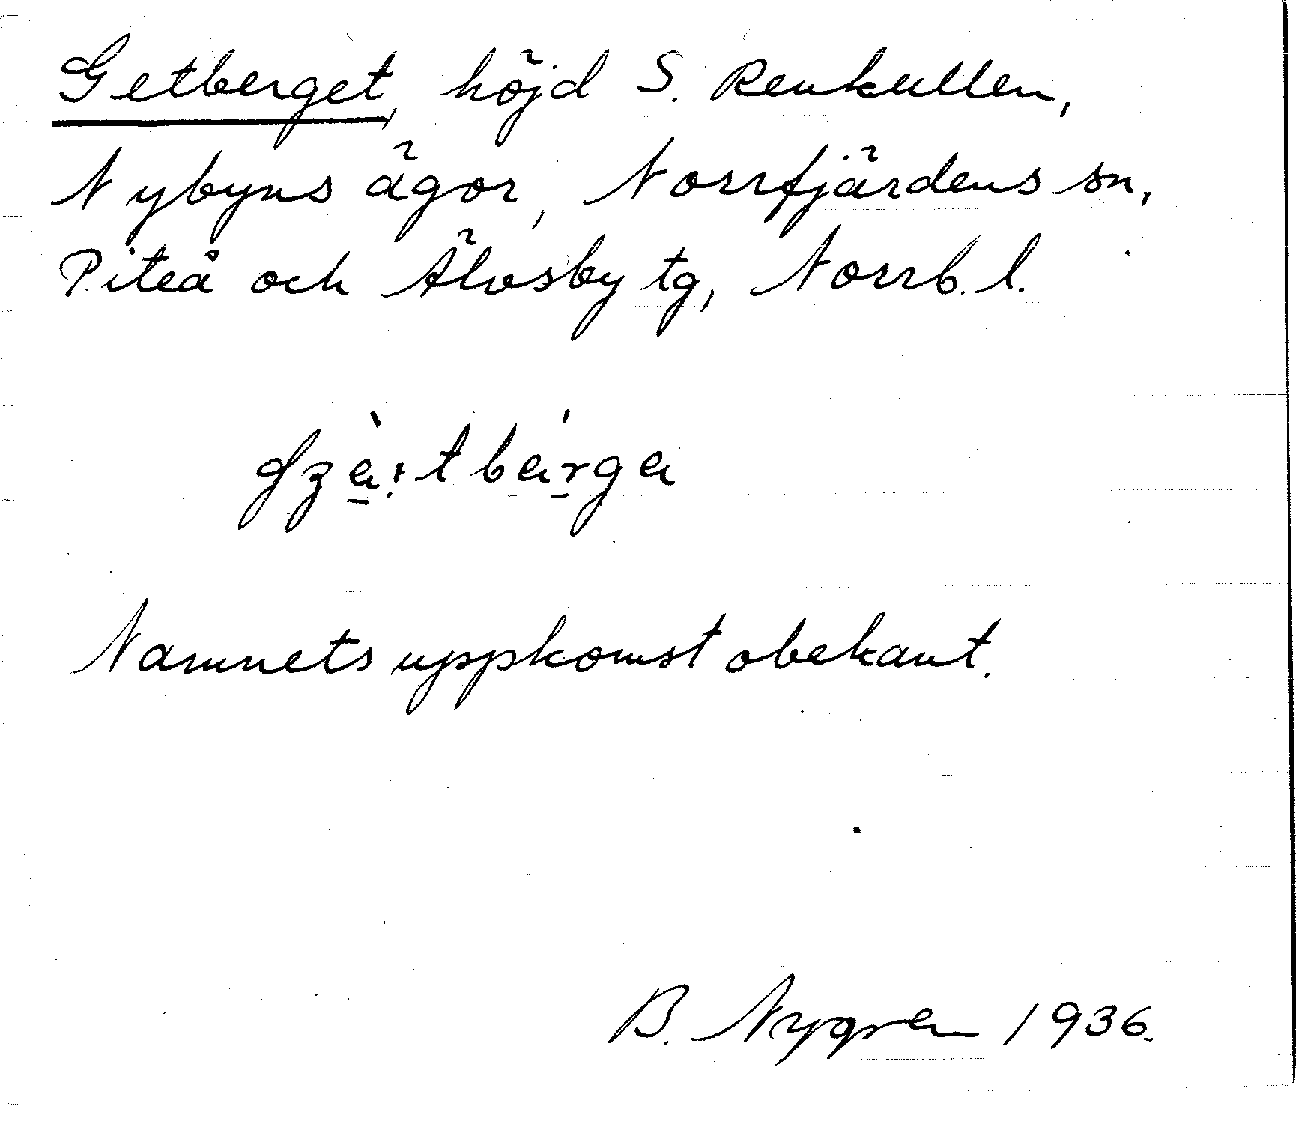 Getberget, höjd S. Renkullen,
Nybyns ägor, Norrfjärdens sn,
Piteå och Älvsby tg, Norrb. l.
Namnets uppkomst obekant.
B. Nygren 1936.